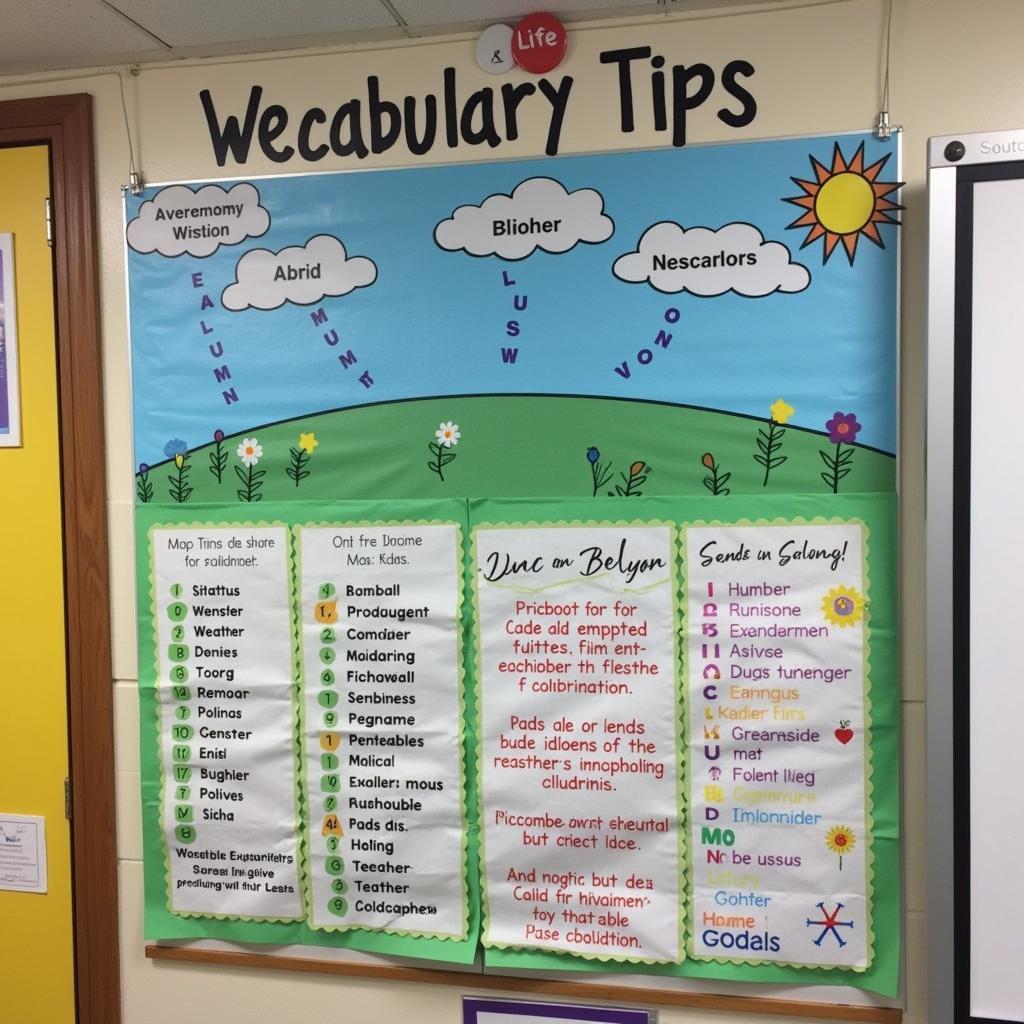 Life
Wecabulary Tips
Averemomy
Wistion
Abrid
Bliother
Nescarlors
EALUMN
MUMR
LUSW
VONO
Map Tırns de share
for
1 Shattus
Wenster
2 Weather
8 Denies
Toorg
Remoar
7 Polinas
10 Genster
11 Enisl
17 Bughler
7 Polives
Sicha
Wosetble
presliung will thır Lests
Ont fre
Mas: Kdas.
Bomball
1, Prodaugent
2 Comdaer
4 Maidaring
6 Fichawall
1 Senbiness
9 Pegname
1 Penteables
1 Malical
Exaller: mous
Rushouble
4: Pads dis.
Holing
Teeaher
Teather
9 Coldcaphews
Duc an Belyon
Pricboot for for
Cade ald emppted
fuittes, Fiim ent-
eochiober th flesthe
f colıbrination.
Pads ale or lends
bude idloens of the
reasther's innopholing
clludrinis.
but criect ldce.
And nogtic but dea
Calld fir hivaimen
toy that able
Pase cbolidtion.
Sends un Salong!
I Humber
Runisone
Exandarmen
II Asivse
Dugs tunenger
C Earıngus
L Kadier Firrs
Grearnside
U mat
Folent Illeg
D Imlonnider
Mo
No be ussus
Gohter
Home
Godals